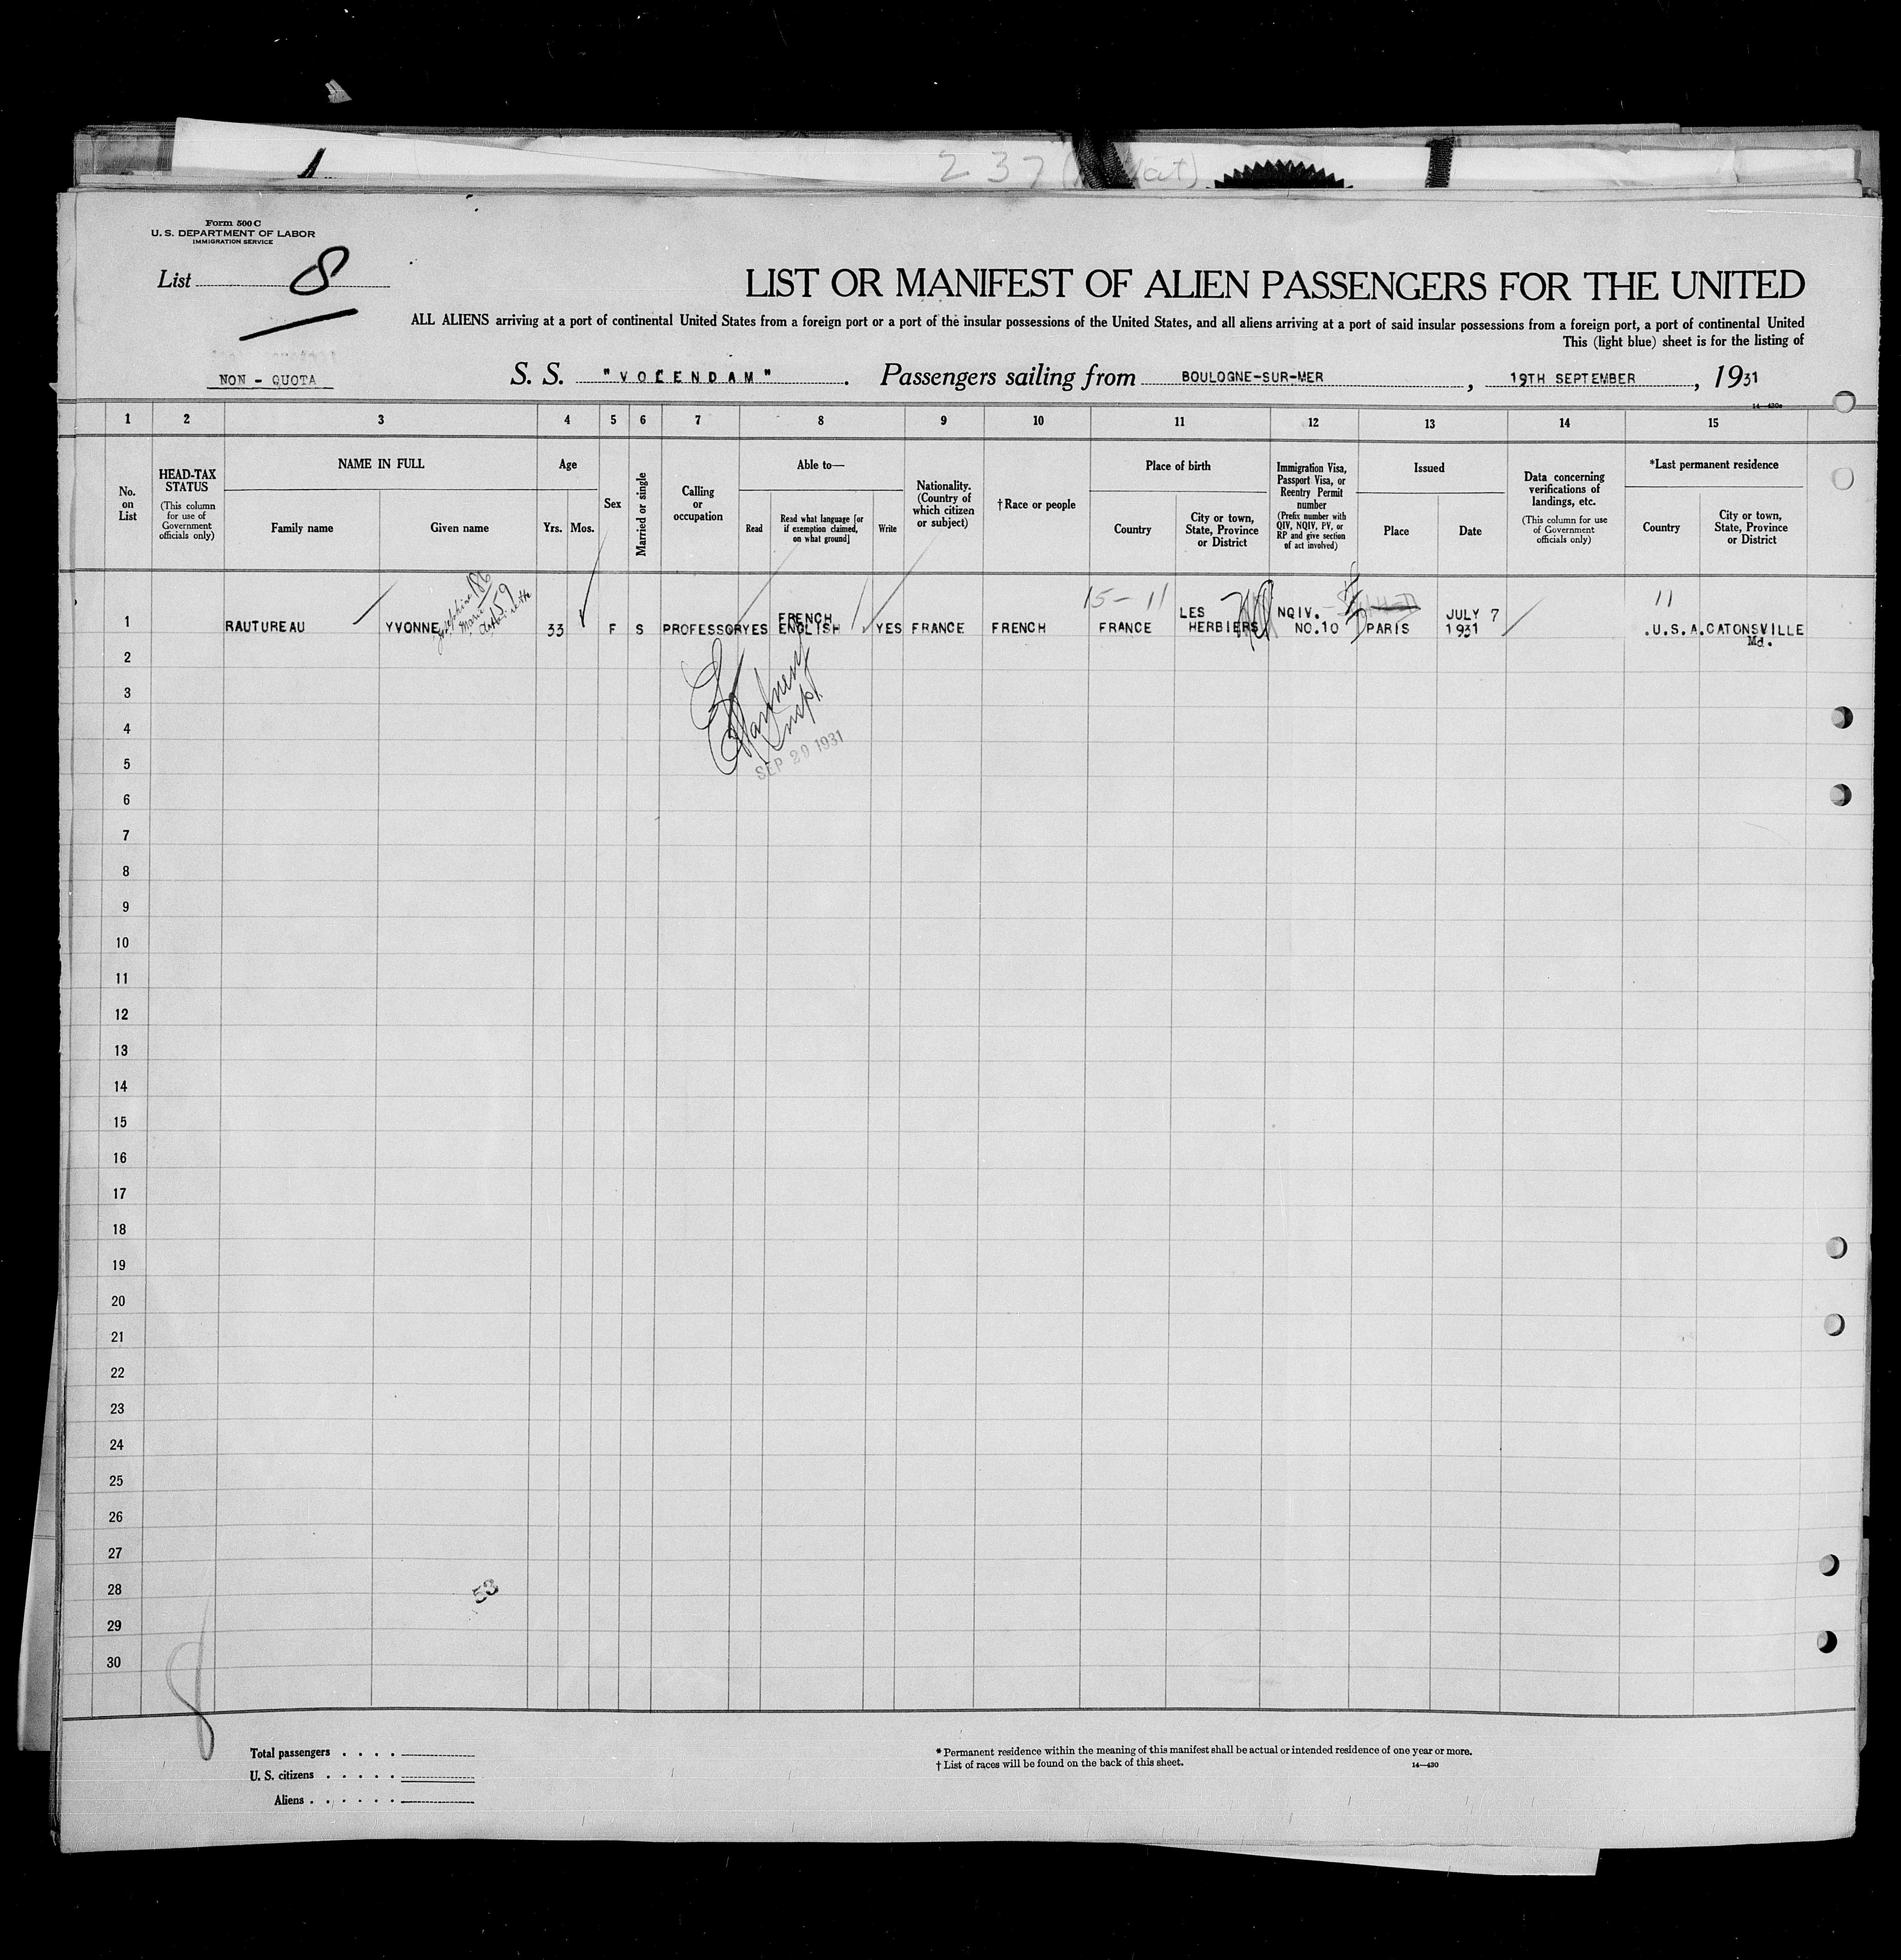 237
Form 500 C
U. S. DEPARTMENT OF LABOR
IMMIGRATION SERVICE
List 8
LIST OR MANIFEST OF ALIEN PASSENGERS FOR THE UNITED
ALL ALIENS arriving at a port of continental United States from a foreign port or a port of the insular possessions of the United States, and all aliens arriving at a port of said insular possessions from a foreign port, a port of continental United
This (light blue) sheet is for the listing of
NON - QUOTA
S. S. "VOLENDAM". Passengers sailing from BOULOGNE-SUR-MER, 19TH SEPTEMBER, 1931
1 2 3 4 5 6 7 8 9 10 11 12 13 14 15
No. on List
HEAD-TAX STATUS
(This column for use of Government officials only)
NAME IN FULL
Family name
Given name
Age
Yrs. Mos.
Sex
Married or single
Calling or occupation
Able to—
Read
Read what language [or if exemption claimed, on what ground]
Write
Nationality. (Country of which citizen or subject)
†Race or people
Place of birth
Country
City or town, State, Province or District
Immigration Visa, Passport Visa, or Reentry Permit number
(Prefix number with QIV, NQIV, PV, or RP and give section of act involved)
Issued
Place
Date
Data concerning verifications of landings, etc.
(This column for use of Government officials only)
*Last permanent residence
Country
City or town, State, Province or District
15-11
11
1 RAUTUREAU YVONNE Josephine Marie 33 F S PROFESSOR YES FRENCH ENGLISH YES FRANCE FRENCH FRANCE LES HERBIERS NQIV. NO.10 PARIS JULY 7 1931 .U.S.A. CATONSVILLE Md.
2
3
4
5
SEP 29 1931
6
7
8
9
10
11
12
13
14
15
16
17
18
19
20
21
22
23
24
25
26
27
28
53
29
30
8
Total passengers . . . .
U. S. citizens . . . . .
Aliens . . . . . .
* Permanent residence within the meaning of this manifest shall be actual or intended residence of one year or more.
† List of races will be found on the back of this sheet.
14—430